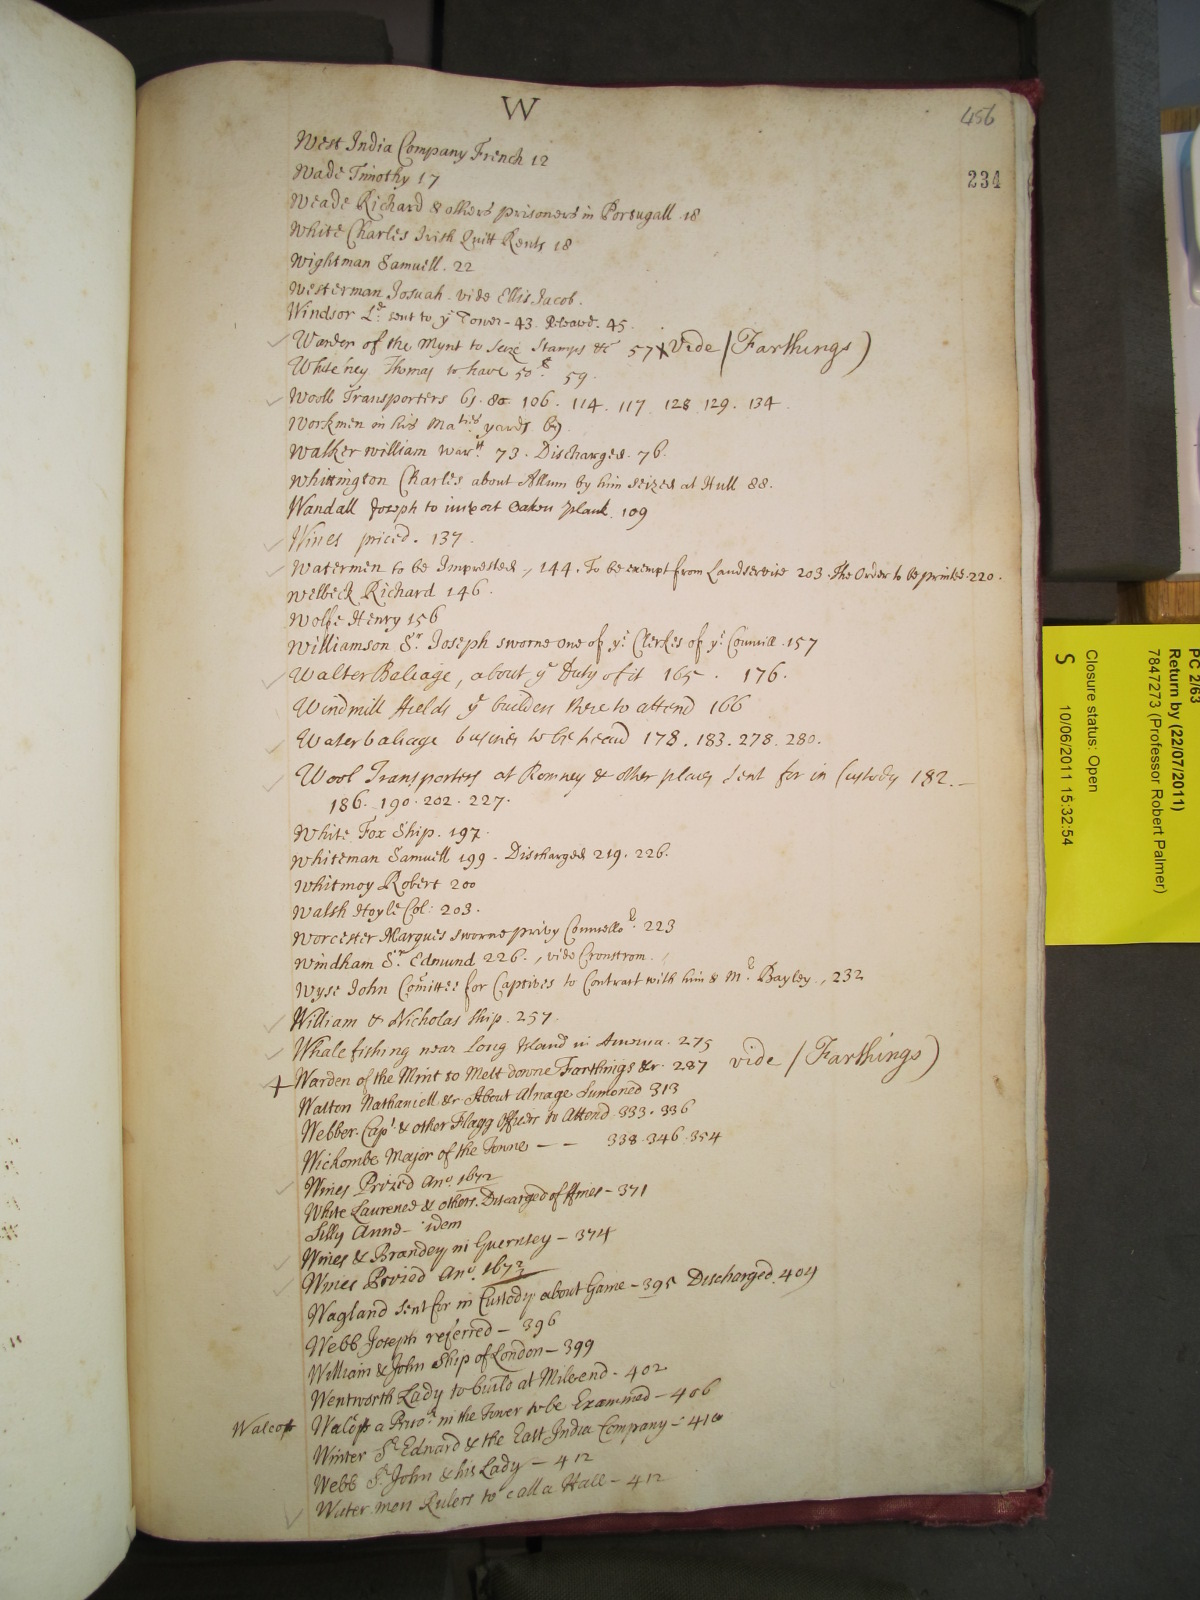 W
456
234
West India Company French 12
Wade Timothy 17
Weade Richard & others prisoners in Portugall 18
White Charles Irish Quitt Rents 18
Wightman Samuell. 22
Westerman Josuah. vide Ellis Jacob.
Windsor Ld. sent to ye Tower - 43 Releasd. 45.
Warden of the Mynt to Seize Stamps &c 57 x Vide (Farthings)
Whiteney Thomas to have 50 59.
Wooll Transporters 61. 80 106. 114. 117 128 129. 134
Workmen in his Maties yards 69
Walker william warrt. 73. Discharged. 76.
Whittington Charles about Allum by him seized at Hull 88.
Wandall Joseph to import Oaken plank. 109
Wines priced. 137.
Watermen to be Imprested, 144. To be exempt from Landservice 203. The Order to be printed. 220.
Welbeck Richard 146.
Wolfe Henry 156
Williamson Sr. Joseph sworne one of ye Clerkes of ye Councill. 157
Walter Baliage, about ye Duty of it 165. 176.
Windmill fields ye builders there to attend 166
Waterbaliage busines to be heard 178. 183. 278. 280.
Wool Transporters at Romney & other places sent for in Custody 182. -
186. 190. 202. 227.
White Fox Ship. 197.
Whiteman Samuell 199. Discharged 219. 226.
Whitmoy Robert 200
Walsh Hoyle Col: 203.
Worcester Marques sworne privy Counsellor. 223
Windham Sr. Edmund 226., vide Cronstrom.
Wyse John Comittee for Captives to Contract with him & Mr. Bayley., 232
William & Nicholas ship. 257.
Whale fishing near Long Island in America. 275
Warden of the Mint to Melt downe Farthings &c. 287 vide (Farthings)
Walton Nathaniell &c About Alnage Sumoned 313
Webber. Capt & other Flagg Officers to Attend 333. 336
Wickombe Major of the Towne - - 338. 346. 354
Wines Prized Ano. 1672
White Laurence & others. Discarged of ffines - 371
Silly Anne - idem
Wines & Brandey in Guernsey - 374
Wines Prized Ano. 1673
Wagland sent for in Custody about Game - 395 Discharged. 404
Webb Joseph referred - 396
William & John Ship of London - 399
Wentworth Lady to build at Mileend - 402
Walcop Walcop a Prisor. in the Tower to be Examined - 406
Winter Sr. Edward & the East India Company - 410
Webb Sr. John & his Lady - 412
Water men Rulers to call a Hall - 412
PC 2/63
Return by (22/07/2011)
7847273 (Professor Robert Palmer)
Closure status: Open
S 10/06/2011 15:32:54